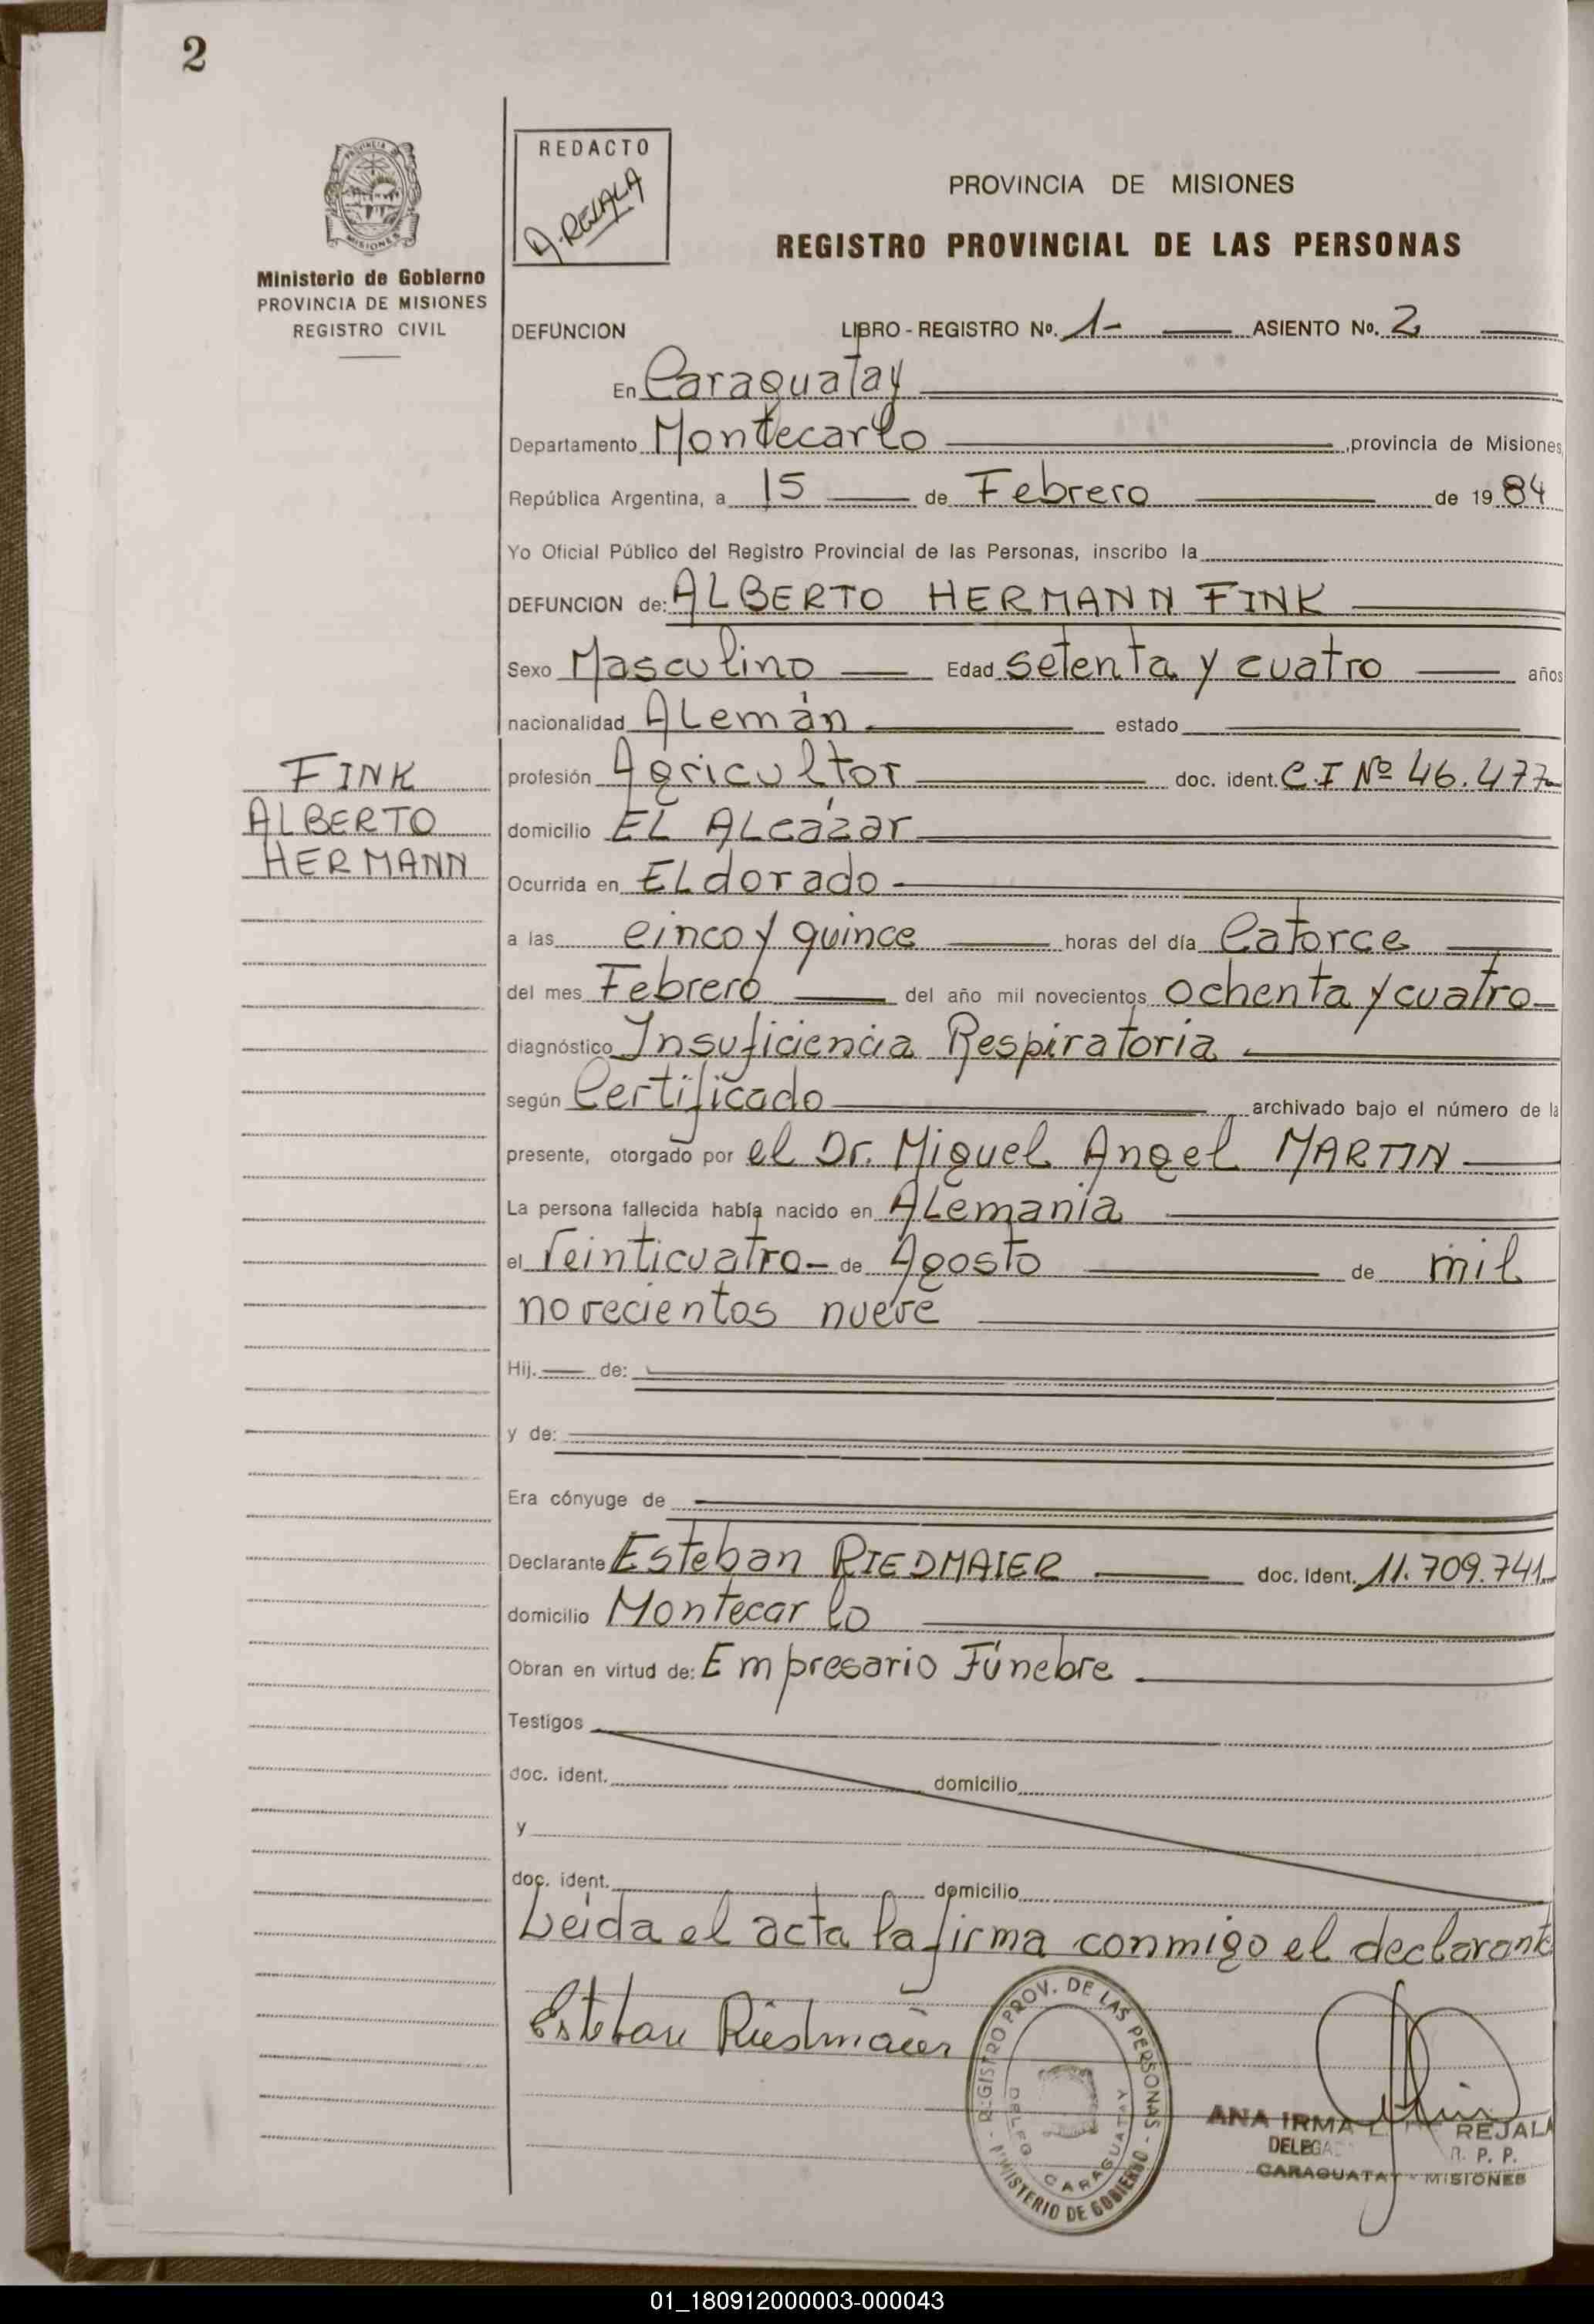 2
PROVINCIA DE
MISIONES
Ministerio de Gobierno
PROVINCIA DE MISIONES
REGISTRO CIVIL
REDACTO
A. REJALA
PROVINCIA DE MISIONES
REGISTRO PROVINCIAL DE LAS PERSONAS
DEFUNCION LIBRO - REGISTRO No. 1- ASIENTO No. 2
En Caraguatay
Departamento Montecarlo , provincia de Misiones,
República Argentina, a 15 de Febrero de 1984
Yo Oficial Público del Registro Provincial de las Personas, inscribo la
DEFUNCION de: ALBERTO HERMANN FINK
Sexo Masculino Edad setenta y cuatro años
nacionalidad Alemán estado
profesión Agricultor doc. ident. C.I Nº 46.477
domicilio EL ALcázar
Ocurrida en ELdorado
a las cinco y quince horas del día Catorce
del mes Febrero del año mil novecientos ochenta y cuatro
diagnóstico Insuficiencia Respiratoria
según Certificado archivado bajo el número de la
presente, otorgado por el Dr. Miguel Angel MARTIN
La persona fallecida había nacido en ALemania
el Veinticuatro de Agosto de mil
novecientos nueve
Hij. de:
y de:
Era cónyuge de
Declarante Esteban RIEDMAIER doc. Ident. 11.709.741
domicilio Montecarlo
Obran en virtud de: Empresario Fúnebre
Testigos
doc. ident. domicilio
y
doc. ident. domicilio
Leída el acta la firma conmigo el declarante
Esteban Riedmaier
REGISTRO PROV. DE LAS PERSONAS - MINISTERIO DE GOBIERNO -
DELEG CARAGUATAY
ANA IRMA REJALA
DELEGA R. P. P.
CARAGUATAY - MISIONES
FINK
ALBERTO
HERMANN
01_180912000003-000043